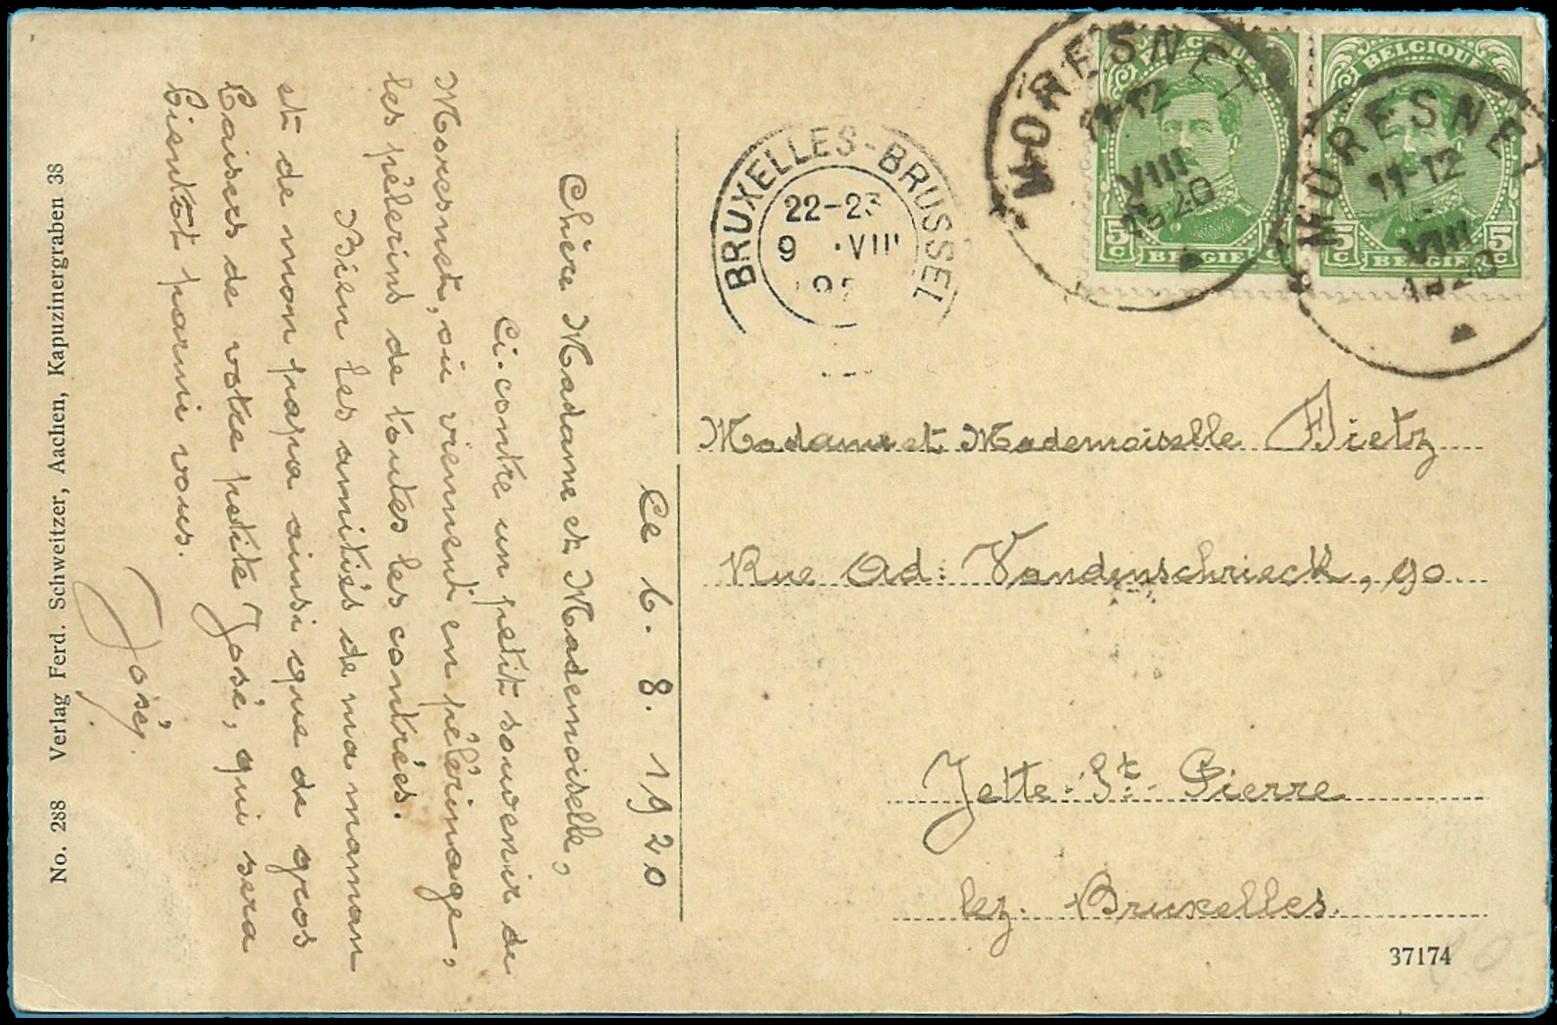 Ce 6. 8. 1920
Chère Madame et Mademoiselle,
Ci-contre un petit souvenir de
Moresnet, où viennent en pélérinage,
les pélerins de toutes les contrées.
Bien les amitiés de ma maman
et de mon papa ainsi que de gros
baisers de votre petite José, qui sera
bientôt parmi vous.
José.
No. 288 Verlag Ferd. Schweitzer, Aachen, Kapuzinergraben 38
BRUXELLES-BRUSSEL
22-23
9 VIII
MORESNET
11-12
VIII
1920
BELGIQUE
5c BELGIË c
MORESNET
11-12
VIII
1920
BELGIQUE
5c BELGIË 5c
Madame et Mademoiselle Dietz
Rue Ad: Vandenschrieck, 90
Jette-St-Pierre
lez. Bruxelles.
37174